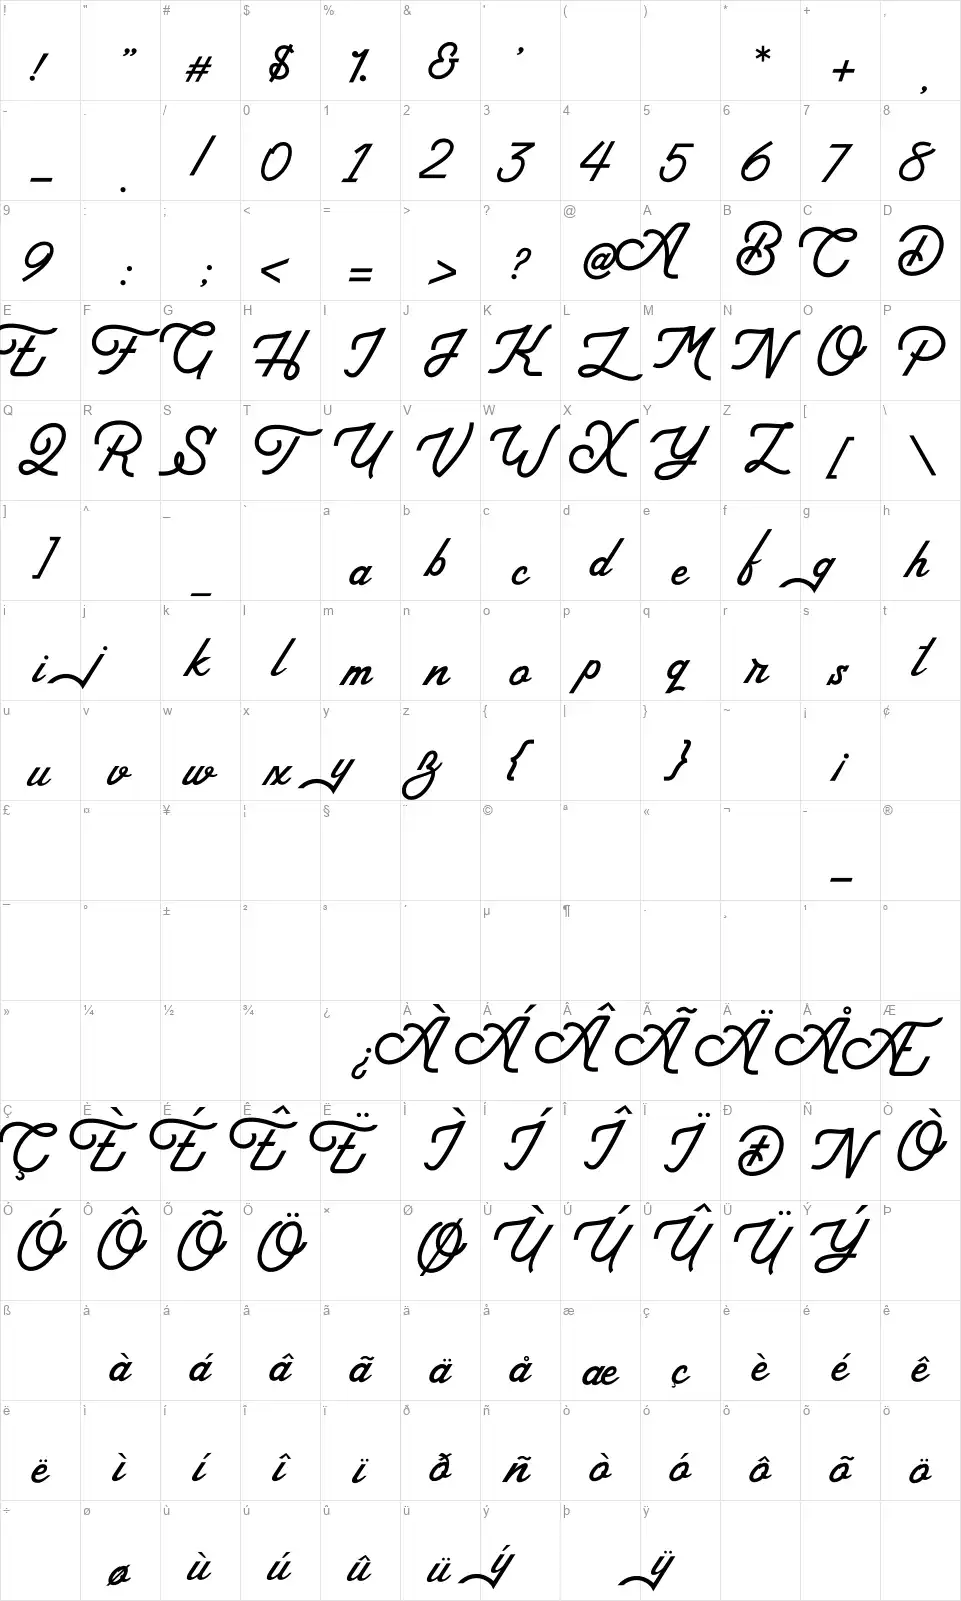 ! " # $ % & ' ( ) * + ,
! ” # $ % & ’ * + ,
- . / 0 1 2 3 4 5 6 7 8
- . / 0 1 2 3 4 5 6 7 8
9 : ; < = > ? @ A B C D
9 : ; < = > ? @ A B C D
E F G H I J K L M N O P
E F G H I J K L M N O P
Q R S T U V W X Y Z [ \
Q R S T U V W X Y Z [ \
] ^ _ ` a b c d e f g h
] _ a b c d e f g h
i j k l m n o p q r s t
i j k l m n o p q r s t
u v w x y z { | } ~ ¡ ¢
u v w x y z { } ¡
£ ¤ ¥ ¦ § ¨ © ª « ¬ - ®
-
¯ ° ± ² ³ ´ µ ¶ · ¸ ¹ º
» ¼ ½ ¾ ¿ À Á Â Ã Ä Å Æ
¿ À Á Â Ã Ä Å Æ
Ç È É Ê Ë Ì Í Î Ï Ð Ñ Ò
Ç È É Ê Ë Ì Í Î Ï Ð N Ò
Ó Ô Õ Ö × Ø Ù Ú Û Ü Ý Þ
Ó Ô Õ Ö Ø Ù Ú Û Ü Ý
ß à á â ã ä å æ ç è é ê
à á â ã ä å æ ç è é ê
ë ì í î ï ð ñ ò ó ô õ ö
ë ì í î ï ð ñ ò ó ô õ ö
÷ ø ù ú û ü ý þ ÿ
ø ù ú û ü ý ÿ